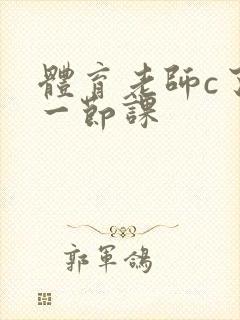 體育老師c了
一節課
郭軍鴿